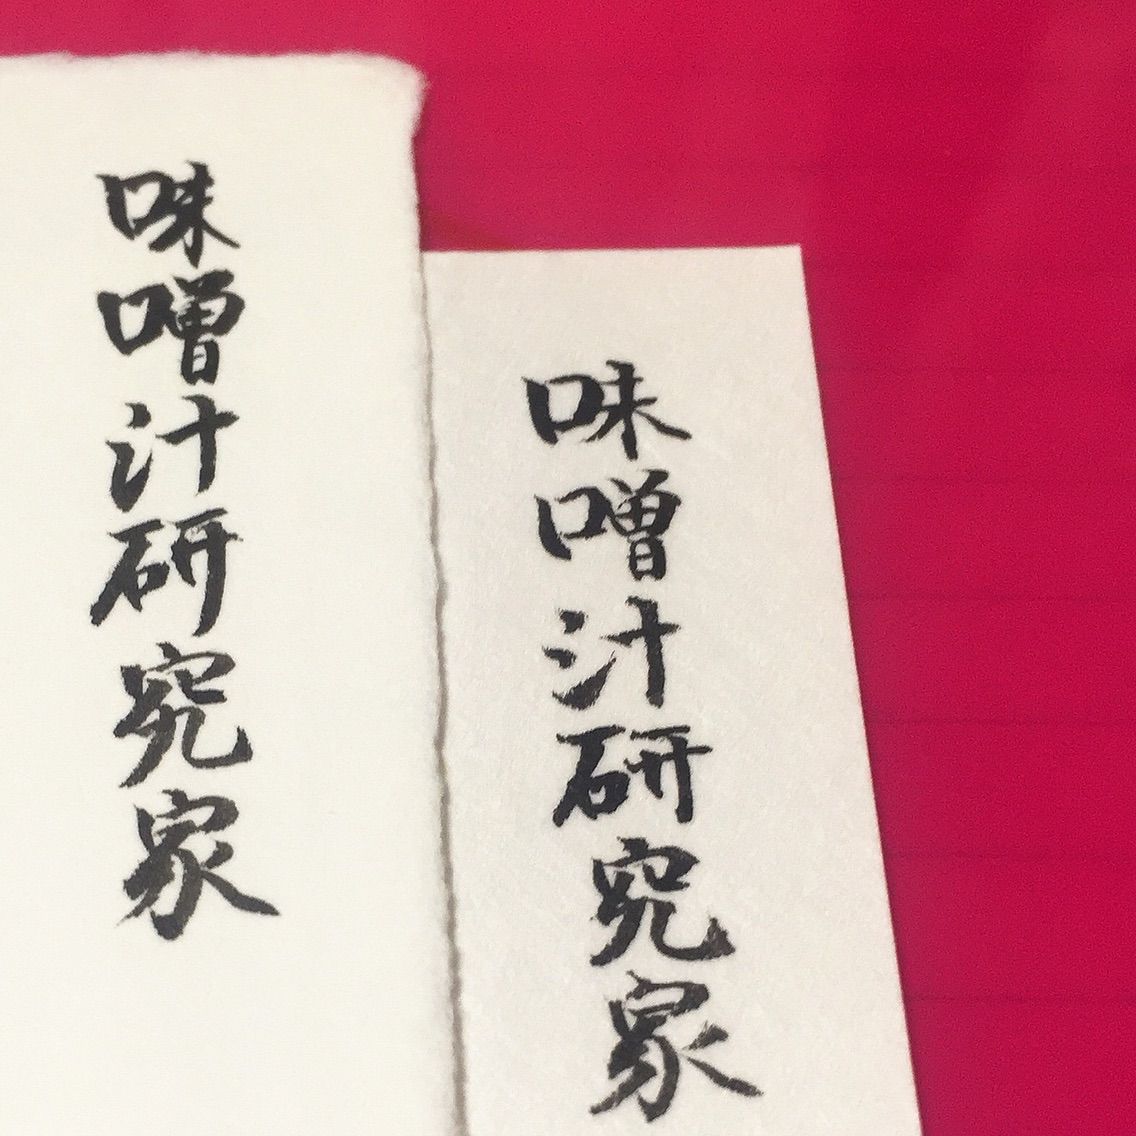 味噌汁研究家
味噌汁研究家